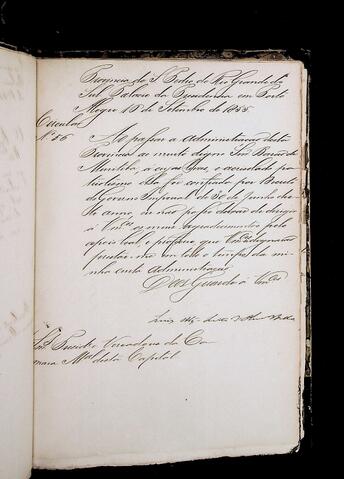 Provincia de S. Pedro do Rio Grande do
Sul Palacio da Presidencia em Porto
Alegre 18 de Setembro de 1855
Circular
Nº 56
Ao passar a administração desta
Provincia ao muito digno Snr Barão de
Muritiba, a cujas luzes, e acurado pa
triotismo foi confiada por Decreto
do Governo Imperial de 30 de Junho des
te anno, eu não posso deixar de dirigir
á VmCes os meus agradecimentos pelo
apoio leal e que VmCes dignarão
prestar-me em todo o tempo da mi
nha curta Administração
Deos Guarde á VmCes
Luis
Snrs. Presidte Vereadores da Ca
mara Mal desta Capital